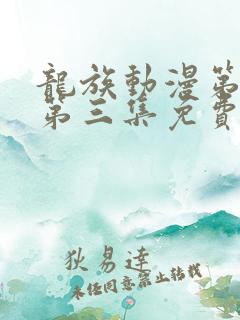 龍族動漫第
第三集免費
狄易達
未任同意禁止转载